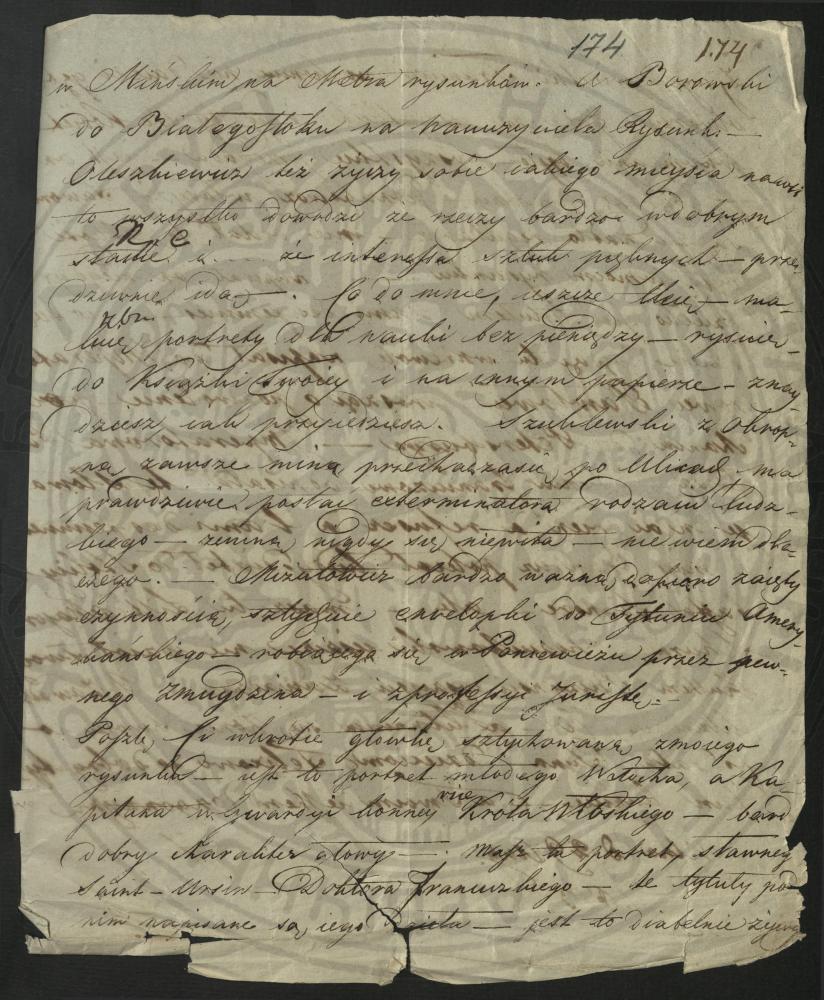 174 174
w Mińskim na Metra rysunków. a Borowski
do Białegostoku na nauczyciela Rysunk. —
Oleszkiewicz też życzy sobie iakiego mieysca
to wszystko dowodzi że rzeczy bardzo w dobrym
stanie i że interessa sztuk pięknych — prze-
dziwnie idą —. Co do mnie, ieszcze — ma-
luię portrety dla nauki bez pieniędzy — rysuię
do Książki Twoiey i na innym papierze — znay-
dziesz iak przyiedziesz. Szublewski z okrop-
ną zawsze miną po Ulicach ma
prawdziwie postać exterminatora rodzaiu ludz-
kiego — zemną nigdy się niewita — nie wiem dla-
czego. — bardzo ważną dopiero zaięty
czynnością, sztychuie envelopki do Tytuniu Amery-
kańskiego — robiącego się w Poniewieżu przez pew-
nego Zmuydzina — i z professyi Juristę. —
Poszlę Ci wkrotce główkę sztychowaną zmoiego
rysunku — iest to portret młodego Włocha, a Ka-
pitana w Gwardyi honney vice Króla Włoskiego — bard
dobry Karakter głowy —. masz tu portret sławney
Saint-Ursin — Doktora Francuzkiego — te tytuły po
nim napisane są iego Dzieła — jest to diabelnie